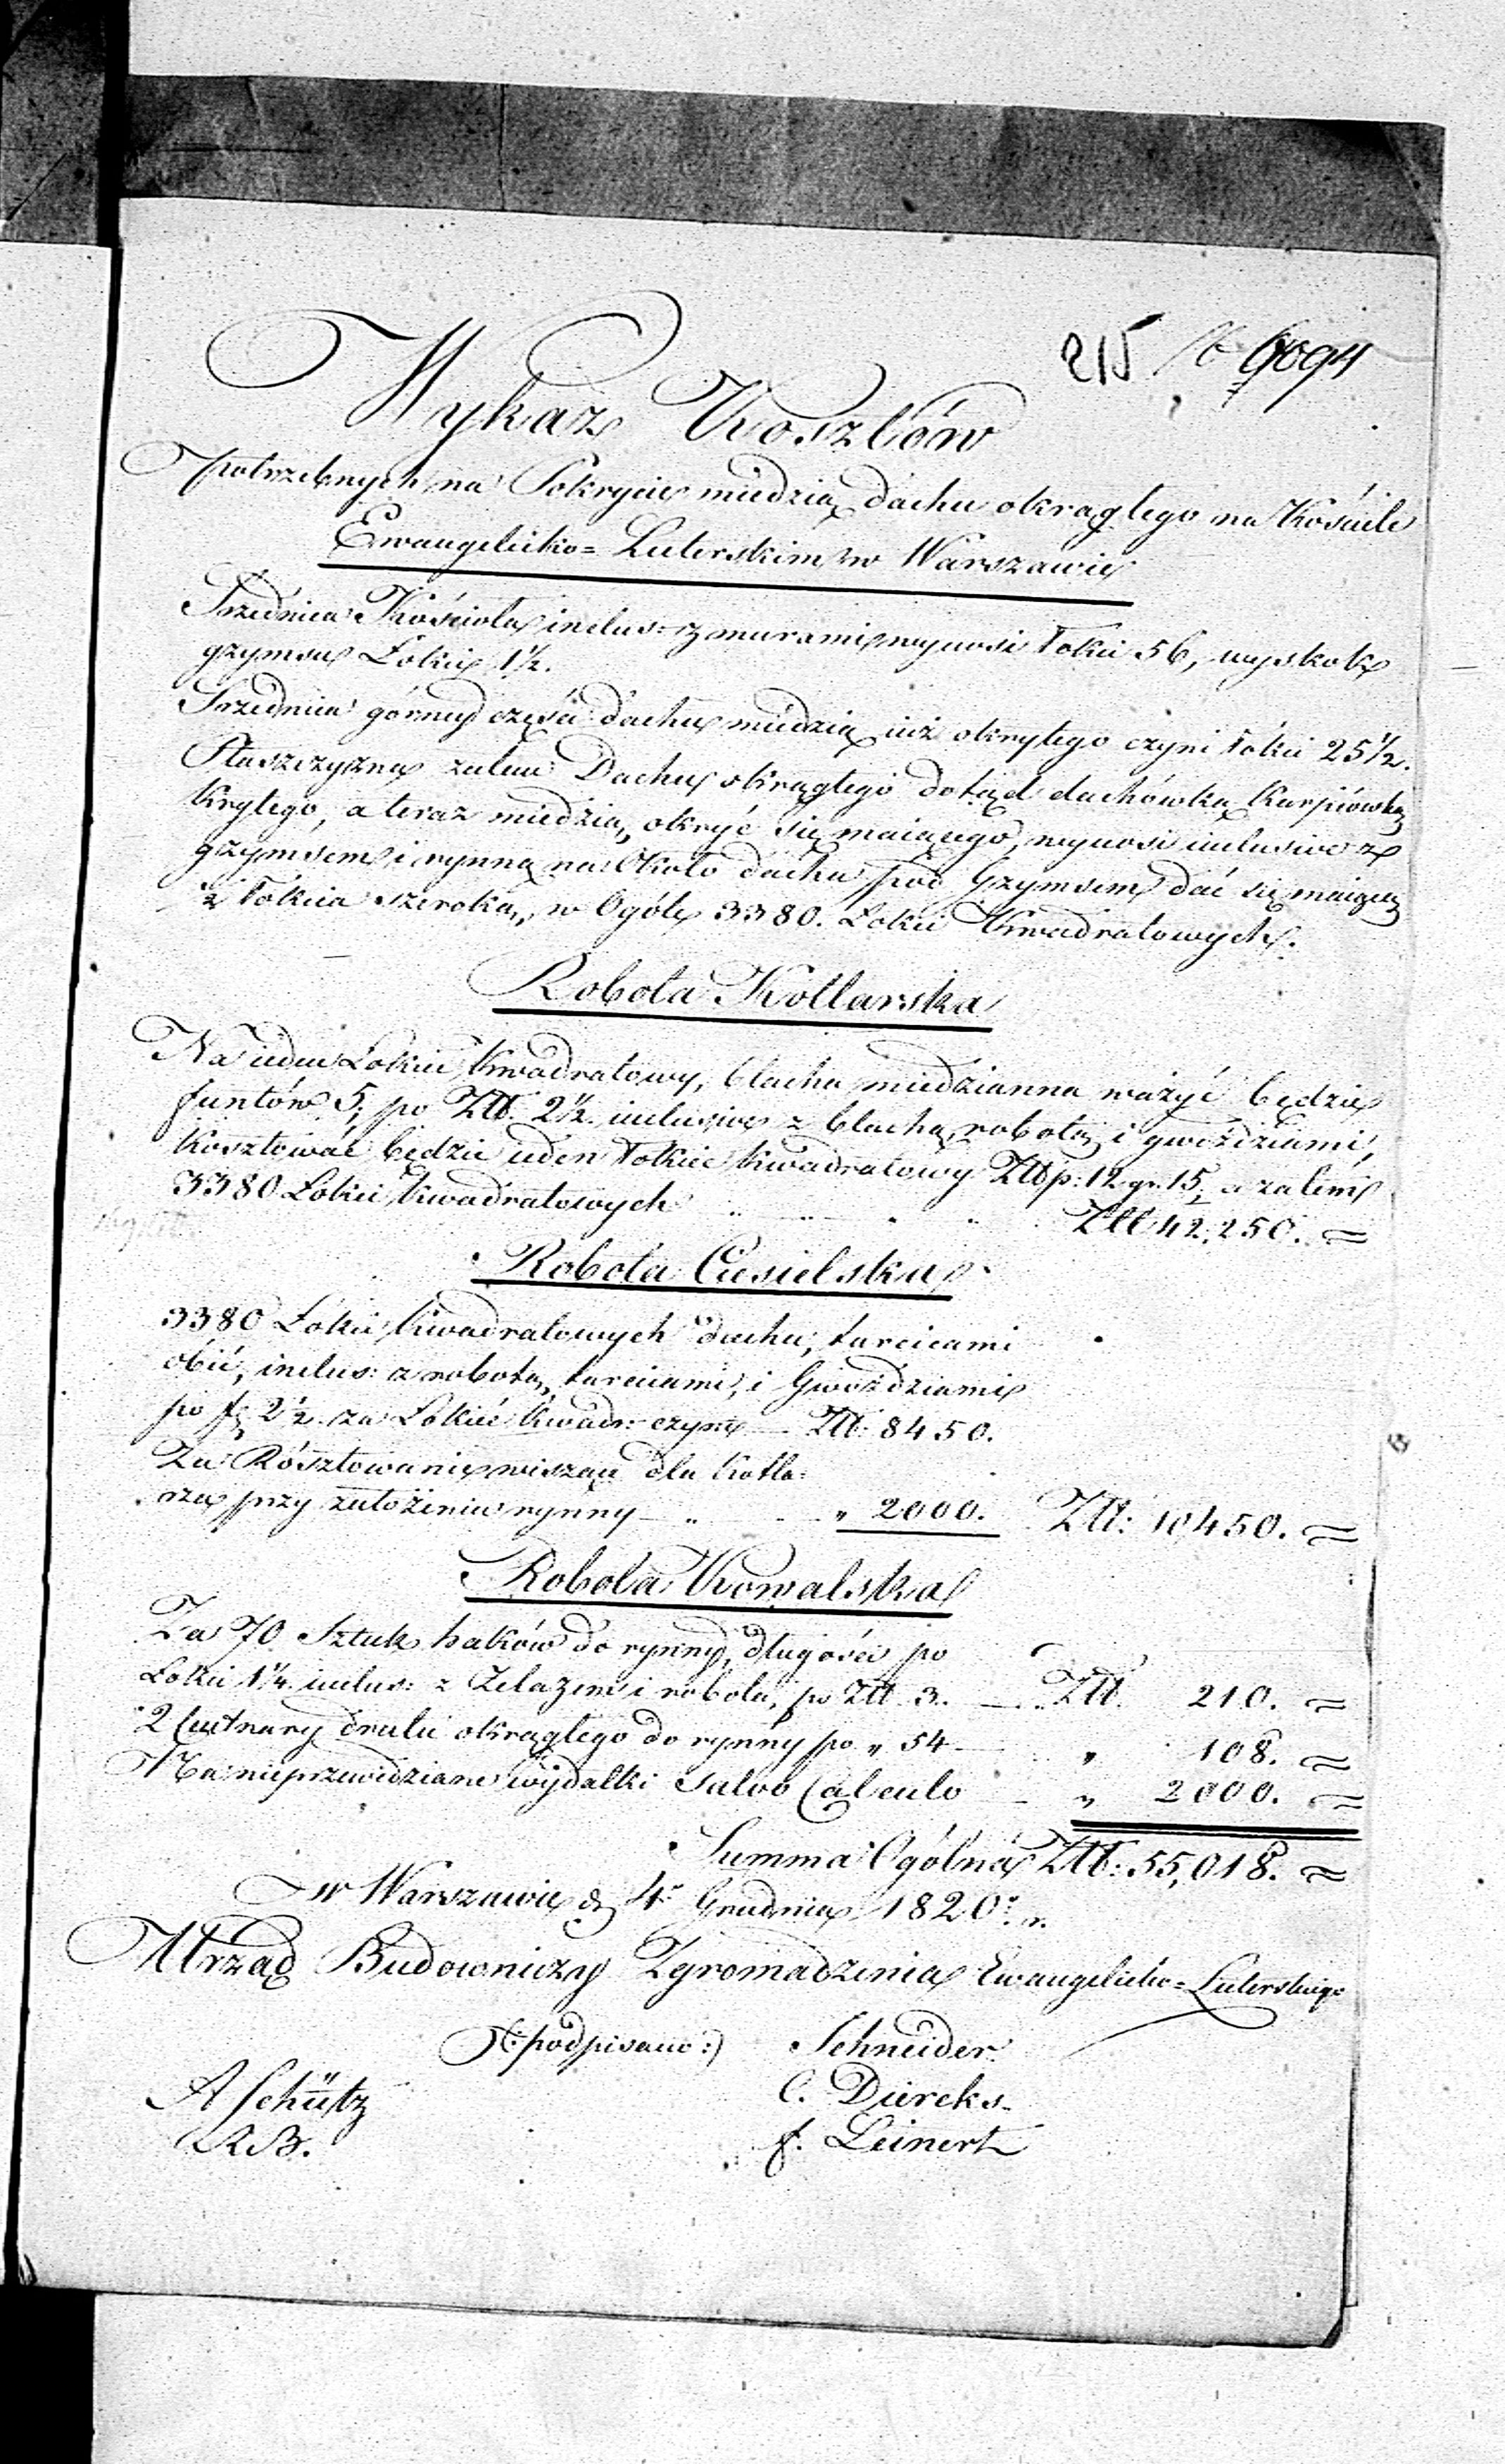 215
9094
Wykaz Kosztów
potrzebnych na Pokrycie miedzią dachu okrągłego na Kościele
Ewangelicko=Luterskim w Warszawie
Srzednica Kościoła inclus: z murami wynosi łokci 56, wyskok
gzymsu Łokci 1½.
Srzednica górney części dachu miedzią iuż okrytego czyni łokci 25½.
Płaszczyzna zatem Dachu okrągłego dotąd dachówką Karpiówką
krytego, a teraz miedzią, okryć się maiącego, wynosi inclusive z
gzymsem i rynną na Około dachu pod Gzymsem dać się maiącą
½ łokcia szeroką, w Ogóle 3380. Łokci Kwadratowych.
Robota Kotlarska
Na ieden Łokieć Kwadratowy, blacha miedzianna ważyć będzie
funtów 5, po Złt. 2½ inclusive z blachą, robotą i gwoździami,
kosztować będzie ieden łokieć kwadratowy Złtp: 12 gr. 15, a zatem
3380 Łokci kwadratowych " " " " Złt 42,250. =
Robota Ciesielska
3380 Łokci kwadratowych dachu, tarcicami
obić, inclus: z robotą, tarcicami, i Gwoździami
po fl 2½ za Łokieć kwadr: czyni — Złt: 8450.
Za Rósztowanie wiszące dla kotla:
rza przy założeniu rynny — " — " 2000. Złt: 10450. =
Robota Kowalska
Za 70 Sztuk haków do rynny, długości po
Łokci 1¼ inclus: z Żelazem i robotą, po Złt. 3. — Złt. 210. =
2 Centnary drutu okrągłego do rynny po " 54 — " 108. =
Na nieprzewidziane wydatki salvo Calculo — " 2000. =
Summa Ogólna Złt: 55,018. =
w Warszawie d 4 Grudnia 1820. r.
Urząd Budowniczy Zgromadzenia Ewangelicko=Luterskiego
(:podpisano:) Schneider
A Schütz C. Diercks
R B. f. Leinert